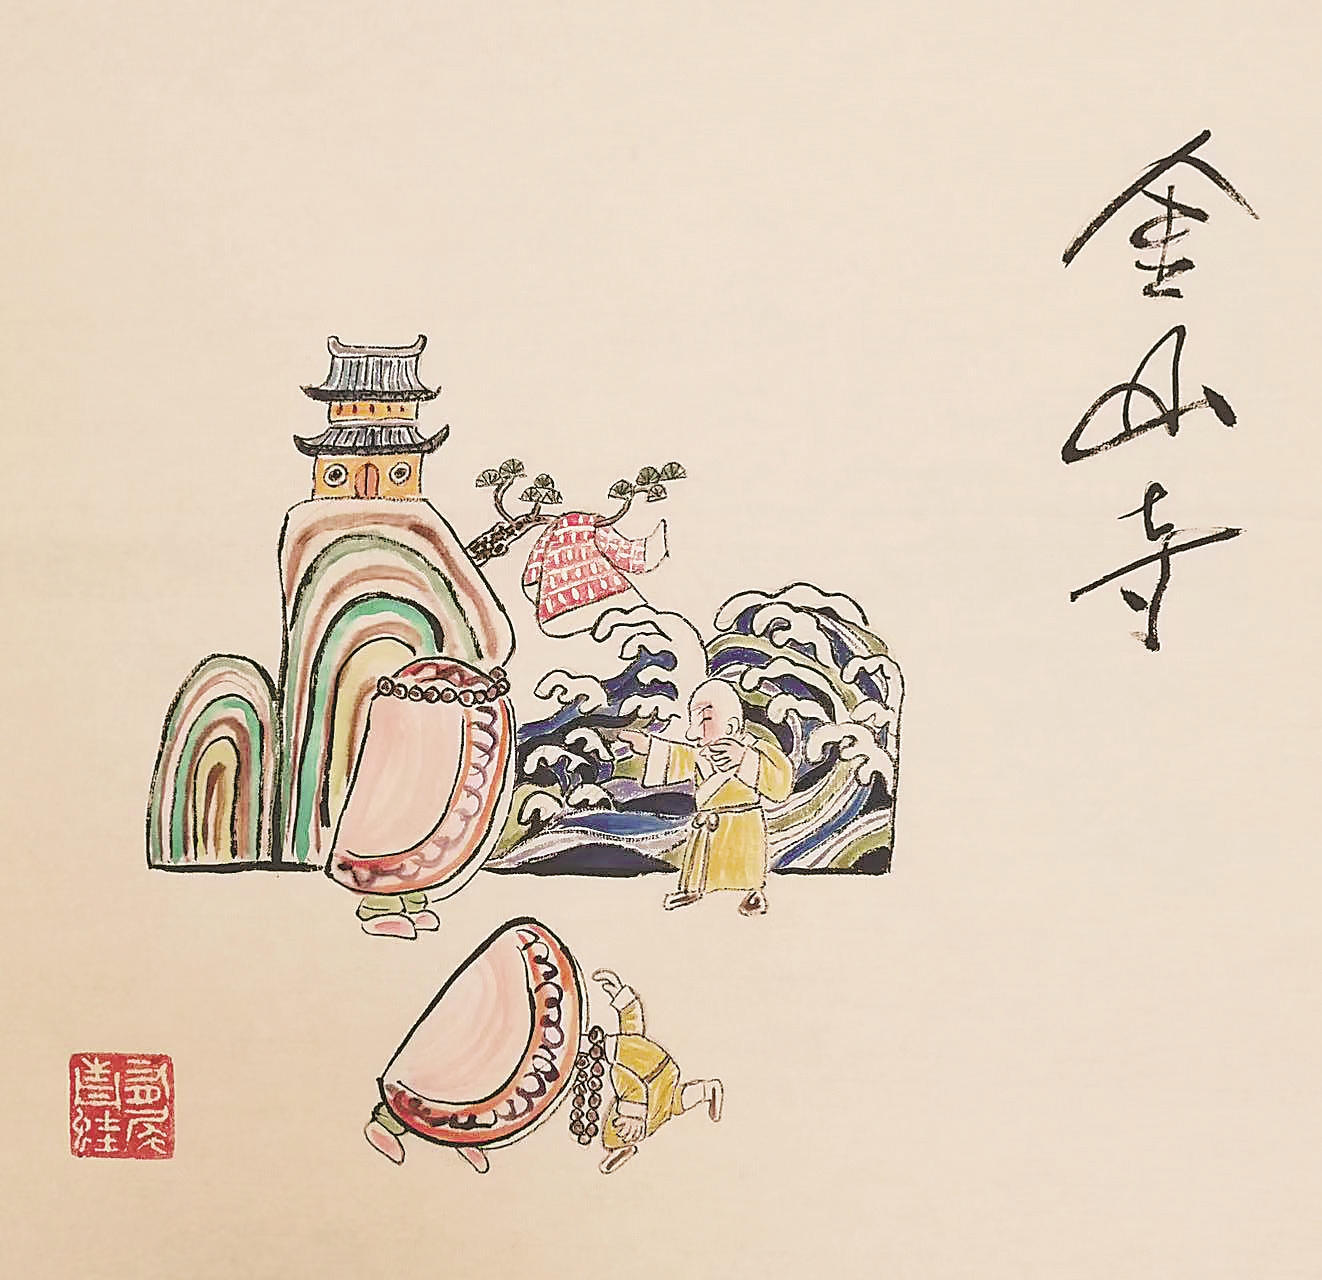 金山寺